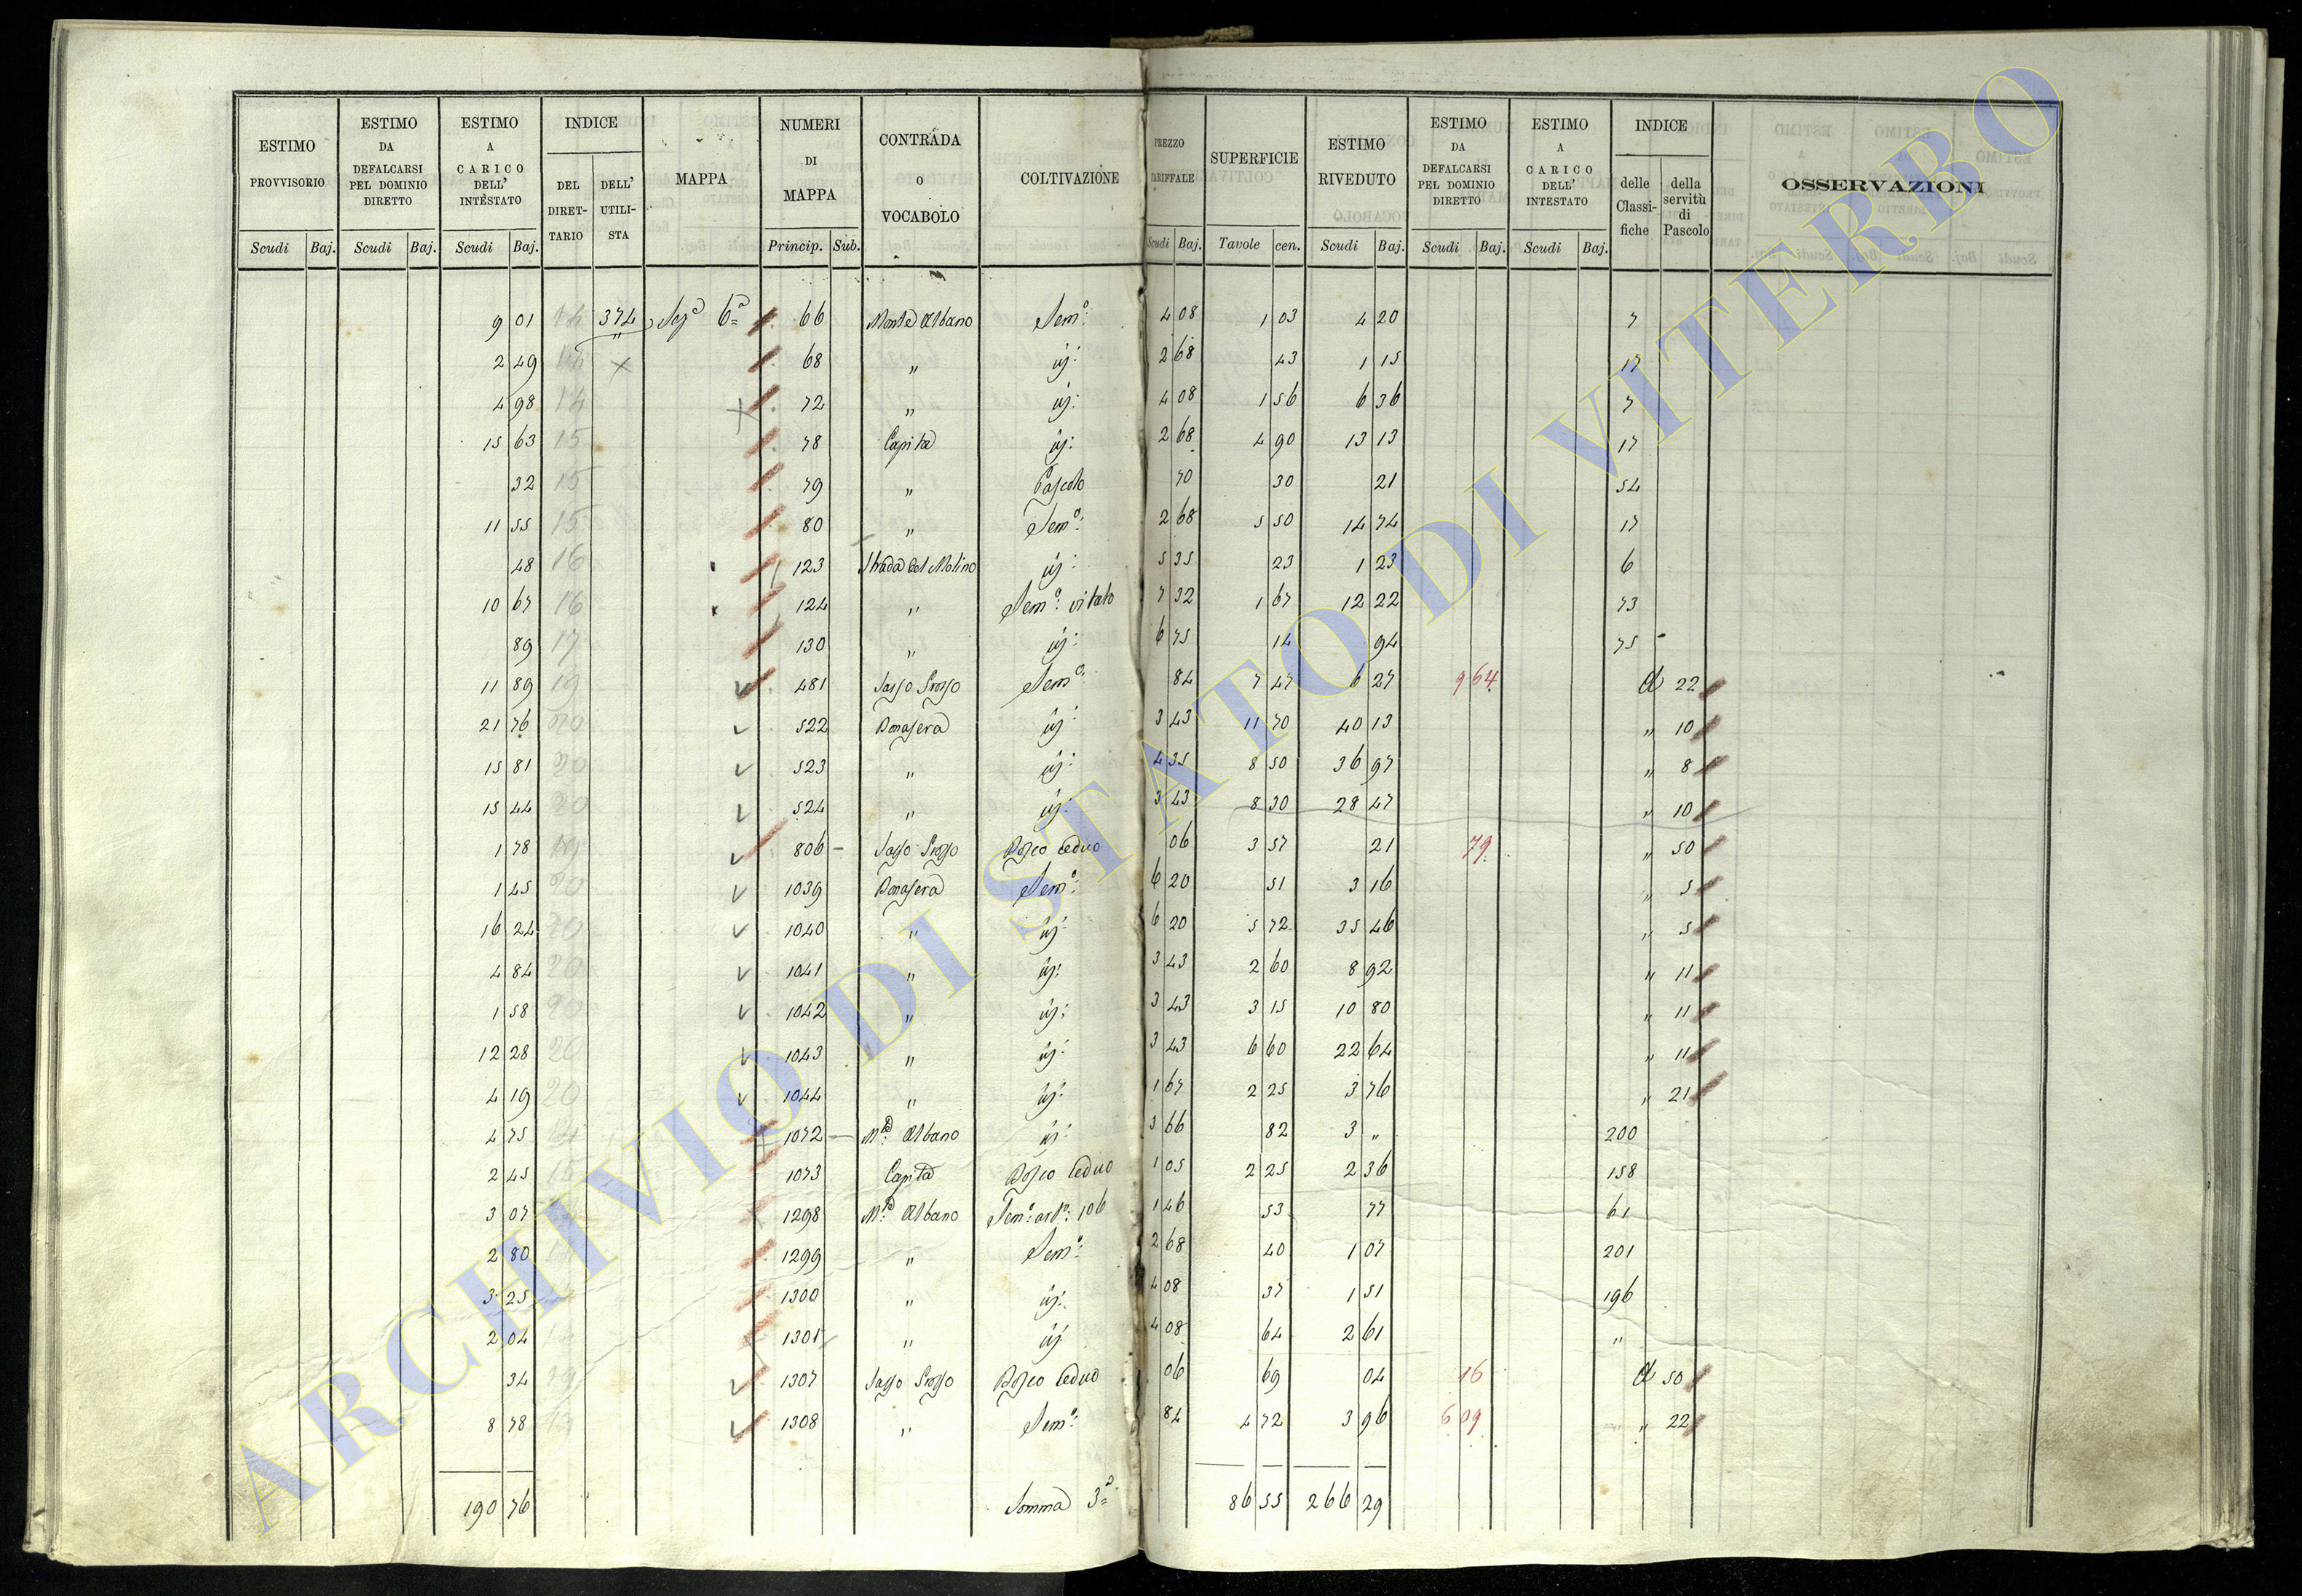 ESTIMO PROVVISORIO Scudi Baj. | ESTIMO DA DEFALCARSI PEL DOMINIO DIRETTO Scudi Baj. | ESTIMO A CARICO DELL' INTESTATO Scudi Baj. | INDICE DEL DIRET-TARIO | DELL' UTILI-STA | MAPPA | NUMERI DI MAPPA Princip. Sub. | CONTRADA O VOCABOLO | COLTIVAZIONE | PREZZO TARIFFALE Scudi Baj. | SUPERFICIE Tavole cen. | ESTIMO RIVEDUTO Scudi Baj. | ESTIMO DA DEFALCARSI PEL DOMINIO DIRETTO Scudi Baj. | ESTIMO A CARICO DELL' INTESTATO Scudi Baj. | INDICE delle Classi-fiche | della servitù di Pascolo | OSSERVAZIONI
9 01 14 374 Seza 6a 66 Monte Albano Semo: 4 08 1 03 4 20 7
2 49 14 x 68 " új: 2 68 43 1 15 17
4 98 14 x 72 " új: 4 08 1 56 6 36 7
15 63 15 78 Capita új: 2 68 4 90 13 13 17
32 15 79 " Pascolo 70 30 21 54
11 55 15 80 " Semo: 2 68 5 50 14 74 17
48 16 123 Strada del Molino új: 5 35 23 1 23 6
10 67 16 124 " Semo: vitato 7 32 1 67 12 22 73
89 17 130 " új: 6 75 14 94 75
11 89 19 481 Sasso Grosso Semo: 84 7 47 6 27 9 64 A 22
21 76 20 522 Bonasera új: 3 43 11 70 40 13 " 10
15 81 20 523 " új: 4 35 8 50 36 97 " 8
15 44 20 524 " új: 3 43 8 30 28 47 " 10
1 78 19 806 Sasso Grosso Bosco Ceduo 06 3 57 21 79 " 50
1 45 20 1039 Bonasera Semo: 6 20 51 3 16 " 5
16 24 20 1040 " új: 6 20 5 72 35 46 " 5
4 84 20 1041 " új: 3 43 2 60 8 92 " 11
1 58 20 1042 " új: 3 43 3 15 10 80 " 11
12 28 20 1043 " új: 3 43 6 60 22 64 " 11
4 19 20 1044 " új: 1 67 2 25 3 76 " 21
4 75 1072 Mte Albano új: 3 66 82 3 " 200
2 45 15 1073 Capita Bosco Ceduo 1 05 2 25 2 36 158
3 07 1298 Mte Albano Semo: 106 1 46 53 77 61
2 80 1299 " Semo: 2 68 40 1 07 201
3 25 1300 " új: 4 08 37 1 51 196
2 04 1301 " új 4 08 64 2 61 "
34 19 1307 Sasso Grosso Bosco Ceduo 06 69 04 16 A 50
8 78 1308 " Semo: 84 4 72 3 96 6 09 " 22
190 76 Somma 3a 86 55 266 29
ARCHIVIO DI STATO DI VITERBO